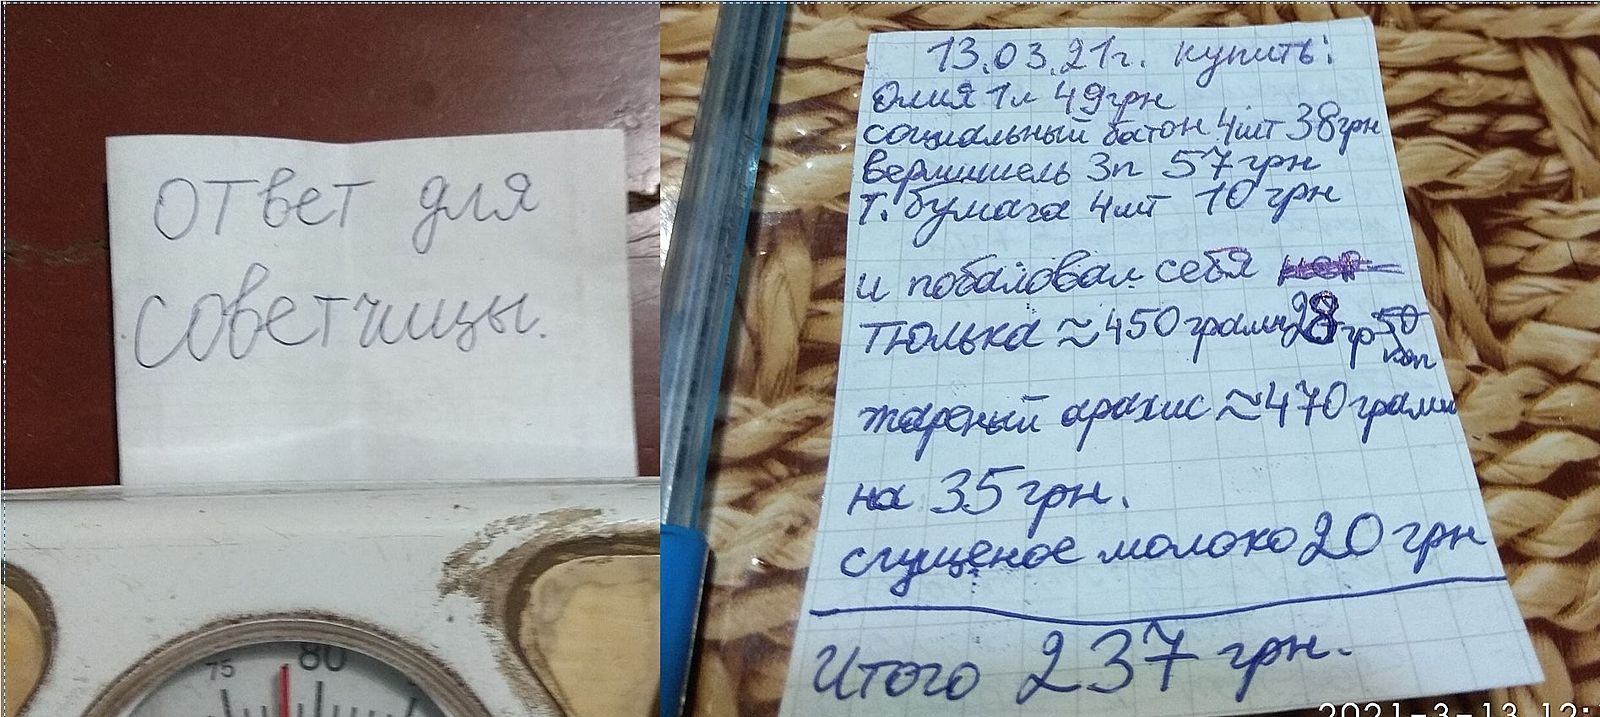 ответ для
советчицы.
75
80
13.03.21г. купить:
Олия 1л 49грн
социальный батон 4шт 38грн
вермишель 3п 57грн
Т. бумага 4шт 10 грн
и побаловал себя
тюлька ≈450 грамм 28 гр 50
коп
жареный арахис ≈470 грамм
на 35 грн.
сгущеное молоко 20 грн
Итого 237 грн.
2021-3-13 12: